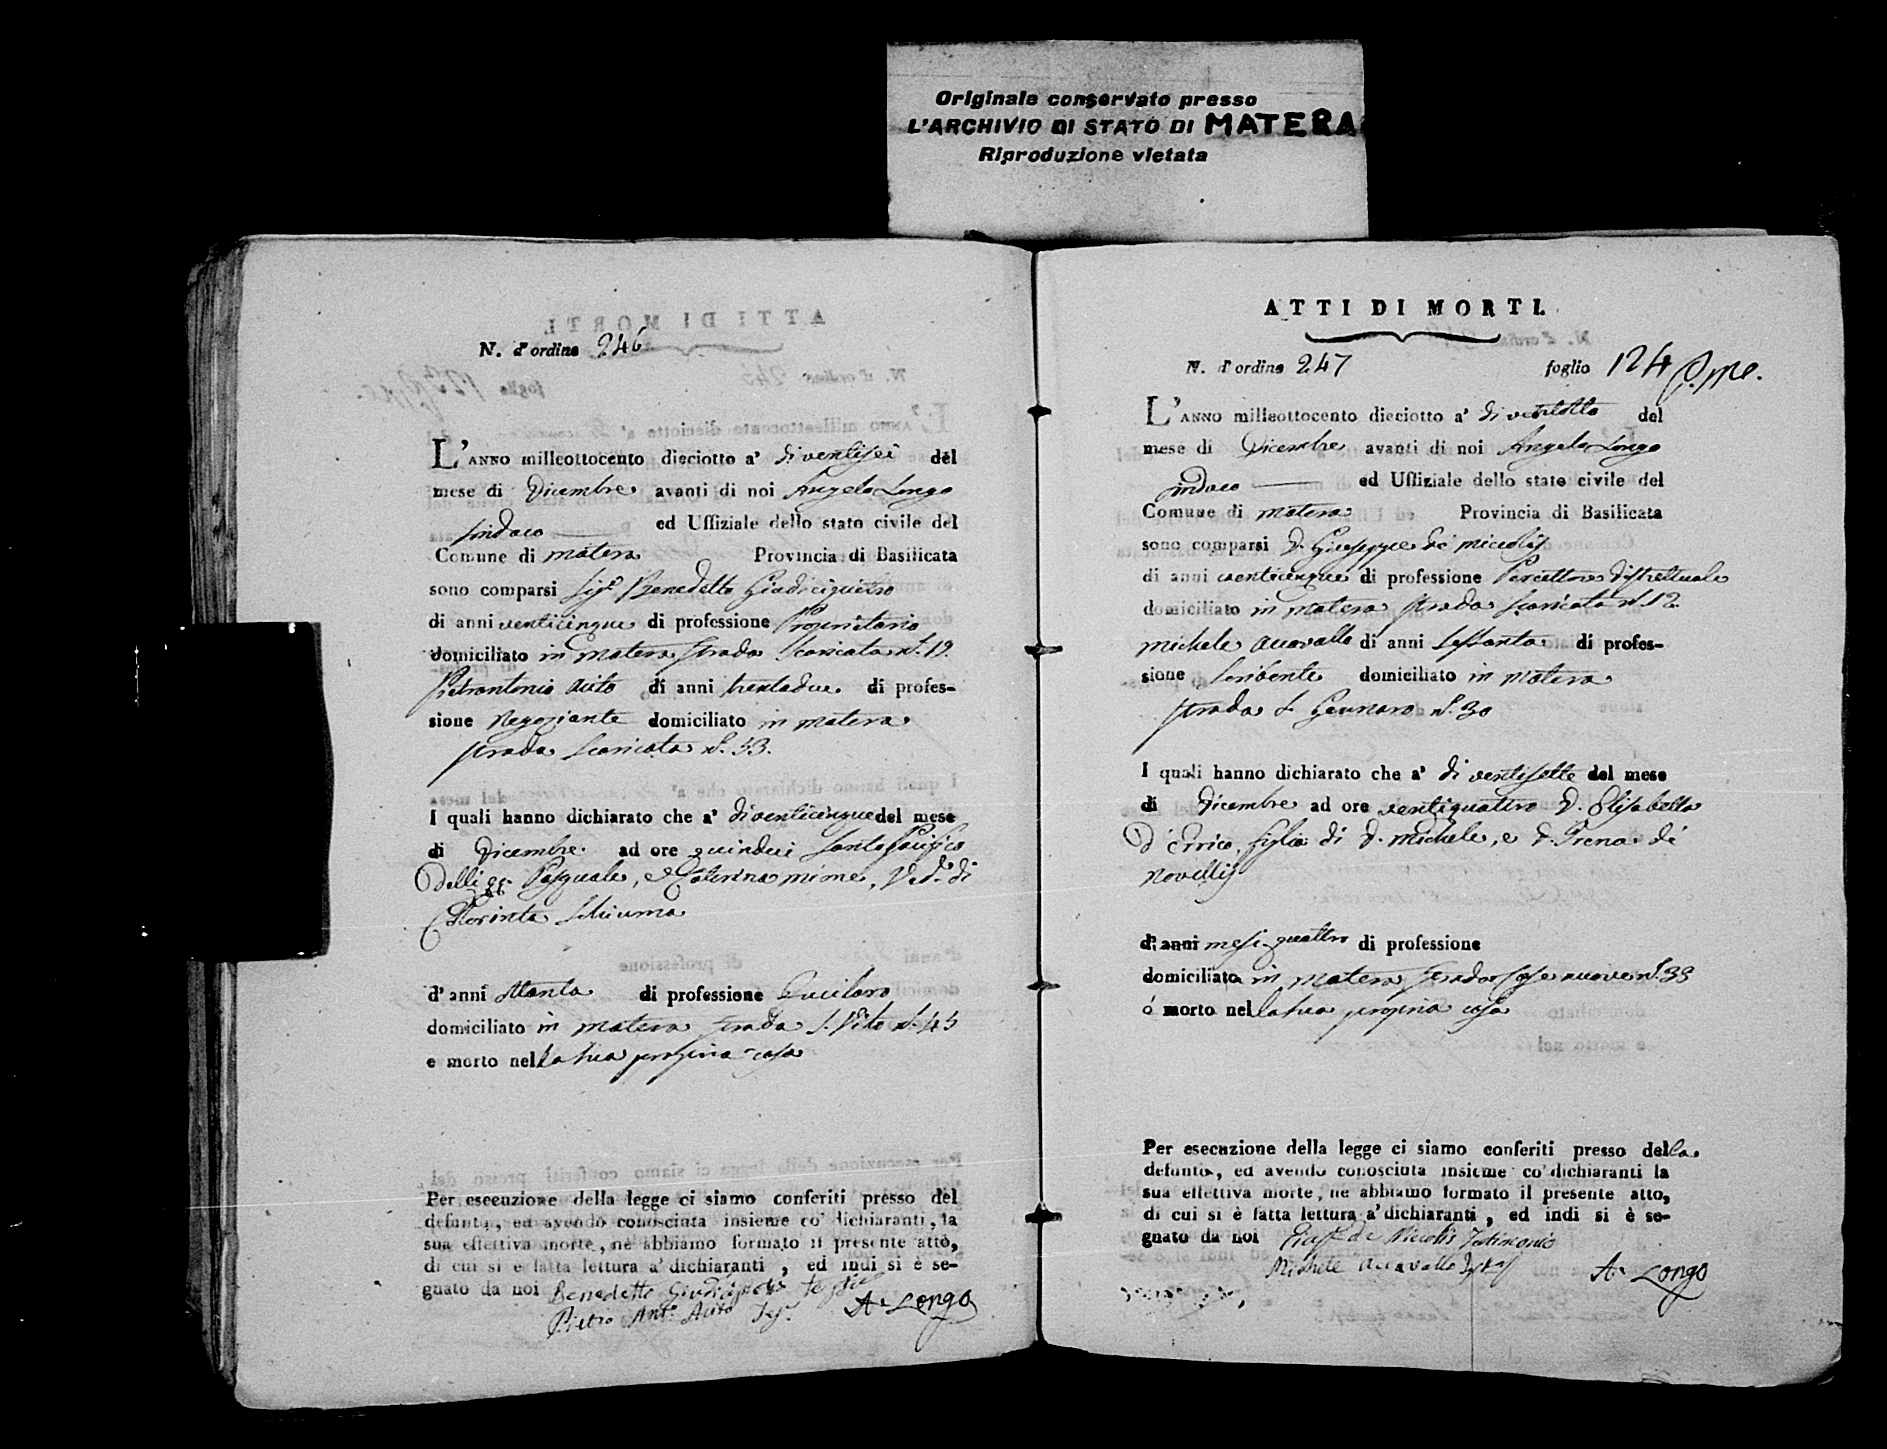 Originale conservato presso
L'ARCHIVIO DI STATO DI MATERA
Riproduzione vietata
N. d'ordine 246
L'ANNO milleottocento dieciotto a' di ventisei del
mese di Dicembre avanti di noi Angelo Longo
Sindaco ed Uffiziale dello stato civile del
Comune di Matera Provincia di Basilicata
sono comparsi Sig.r Benedetto
di anni venticinque di professione Proprietario
domiciliato in Matera strada Scaricata N. 19.
Pietrantonio Acito di anni trentadue di profes-
sione Negoziante domiciliato in Matera
strada Scaricata N. 53.
I quali hanno dichiarato che a' di venticinque del mese
di Dicembre ad ore quindici Santo Pacifico
Delli Pasquale, e Caterina Mime, Ved.o di
Florinta Schiuma
d'anni ottanta di professione
domiciliato in Matera strada S. Vito N. 45
e morto nella sua propria casa
Per esecuzione della legge ci siamo conferiti presso del
defunto, ed avendo conosciuta insieme co' dichiaranti, la
sua effettiva morte, ne abbiamo formato il presente atto,
di cui si è fatta lettura a' dichiaranti, ed indi si è se-
gnato da noi Benedetto
Pietro Ant.o Acito A. Longo
ATTI DI MORTI.
N. d'ordine 247 foglio 124
L'ANNO milleottocento dieciotto a' di ventotto del
mese di Dicembre avanti di noi Angelo Longo
Sindaco ed Uffiziale dello stato civile del
Comune di Matera Provincia di Basilicata
sono comparsi D. Giuseppe de Miccolis
di anni venticinque di professione Percettore distrettuale
domiciliato in Matera strada Scaricata N. 12
Michele Accovallo di anni sessanta di profes-
sione Scribente domiciliato in Matera
strada S. Gennaro N. 30
I quali hanno dichiarato che a' di ventisette del mese
di Dicembre ad ore ventiquattro D. Elisabetta
D'Errico, figlia di D. Michele, e D. Irena de
Novellis
d'anni mesi quattro di professione
domiciliata in Matera strada Case nuove N. 33
é morto nella sua propria casa
Per esecuzione della legge ci siamo conferiti presso della
defunta, ed avendo conosciuta insieme co' dichiaranti la
sua effettiva morte, ne abbiamo formato il presente atto,
di cui si è fatta lettura a' dichiaranti, ed indi si è se-
gnato da noi Gius.e de Miccolis Testimonio
Michele Accovallo
A. Longo